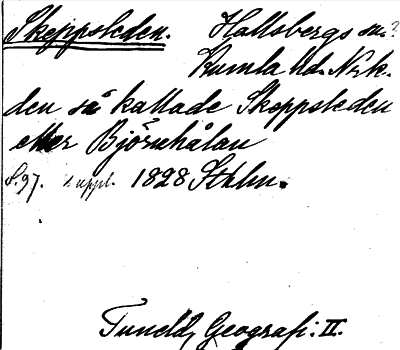 Skeppsleden. Hallsbergs sn.?
Kumla hd. Nrk.
den så kallade Skeppsleden
eller Björnhålan
S. 97. 8 uppl. 1828 Sthlm.
Tuneld, Geografi: II.